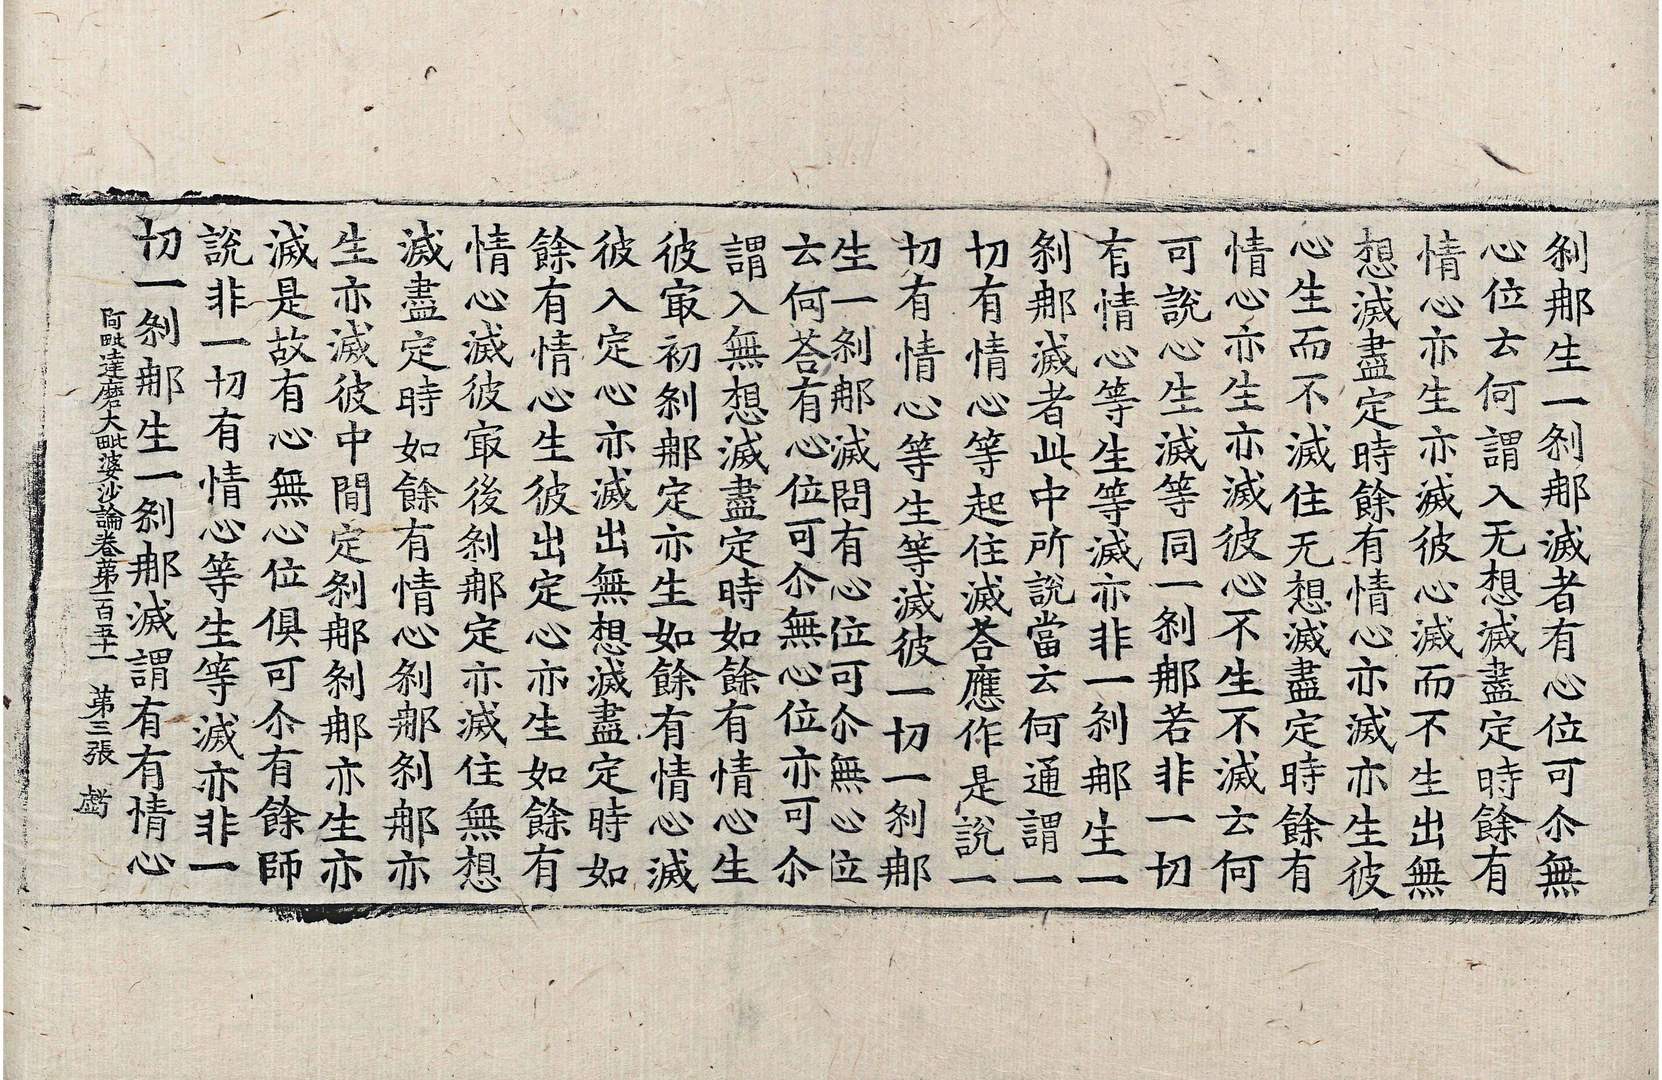 剎那生一剎那滅者有心位可尒無
心位云何謂入无想滅盡定時餘有
情心亦生亦滅彼心滅而不生出無
想滅盡定時餘有情心亦滅亦生彼
心生而不滅住无想滅盡定時餘有
情心亦生亦滅彼心不生不滅云何
可說心生滅等同一剎那若非一切
有情心等生等滅亦非一剎那生一
剎那滅者此中所說當云何通謂一
切有情心等起住滅荅應作是說一
切有情心等生等滅彼一切一剎那
生一剎那滅問有心位可尒無心位
云何荅有心位可尒無心位亦可尒
謂入無想滅盡定時如餘有情心生
彼㝡初剎那定亦生如餘有情心滅
彼入定心亦滅出無想滅盡定時如
餘有情心生彼出定心亦生如餘有
情心滅彼㝡後剎那定亦滅住無想
滅盡定時如餘有情心剎那剎那亦
生亦滅彼中間定剎那剎那亦生亦
滅是故有心無心位俱可尒有餘師
說非一切有情心等生等滅亦非一
切一剎那生一剎那滅謂有有情心
阿毗達磨大毗婆沙論卷第一百五十一 第三張